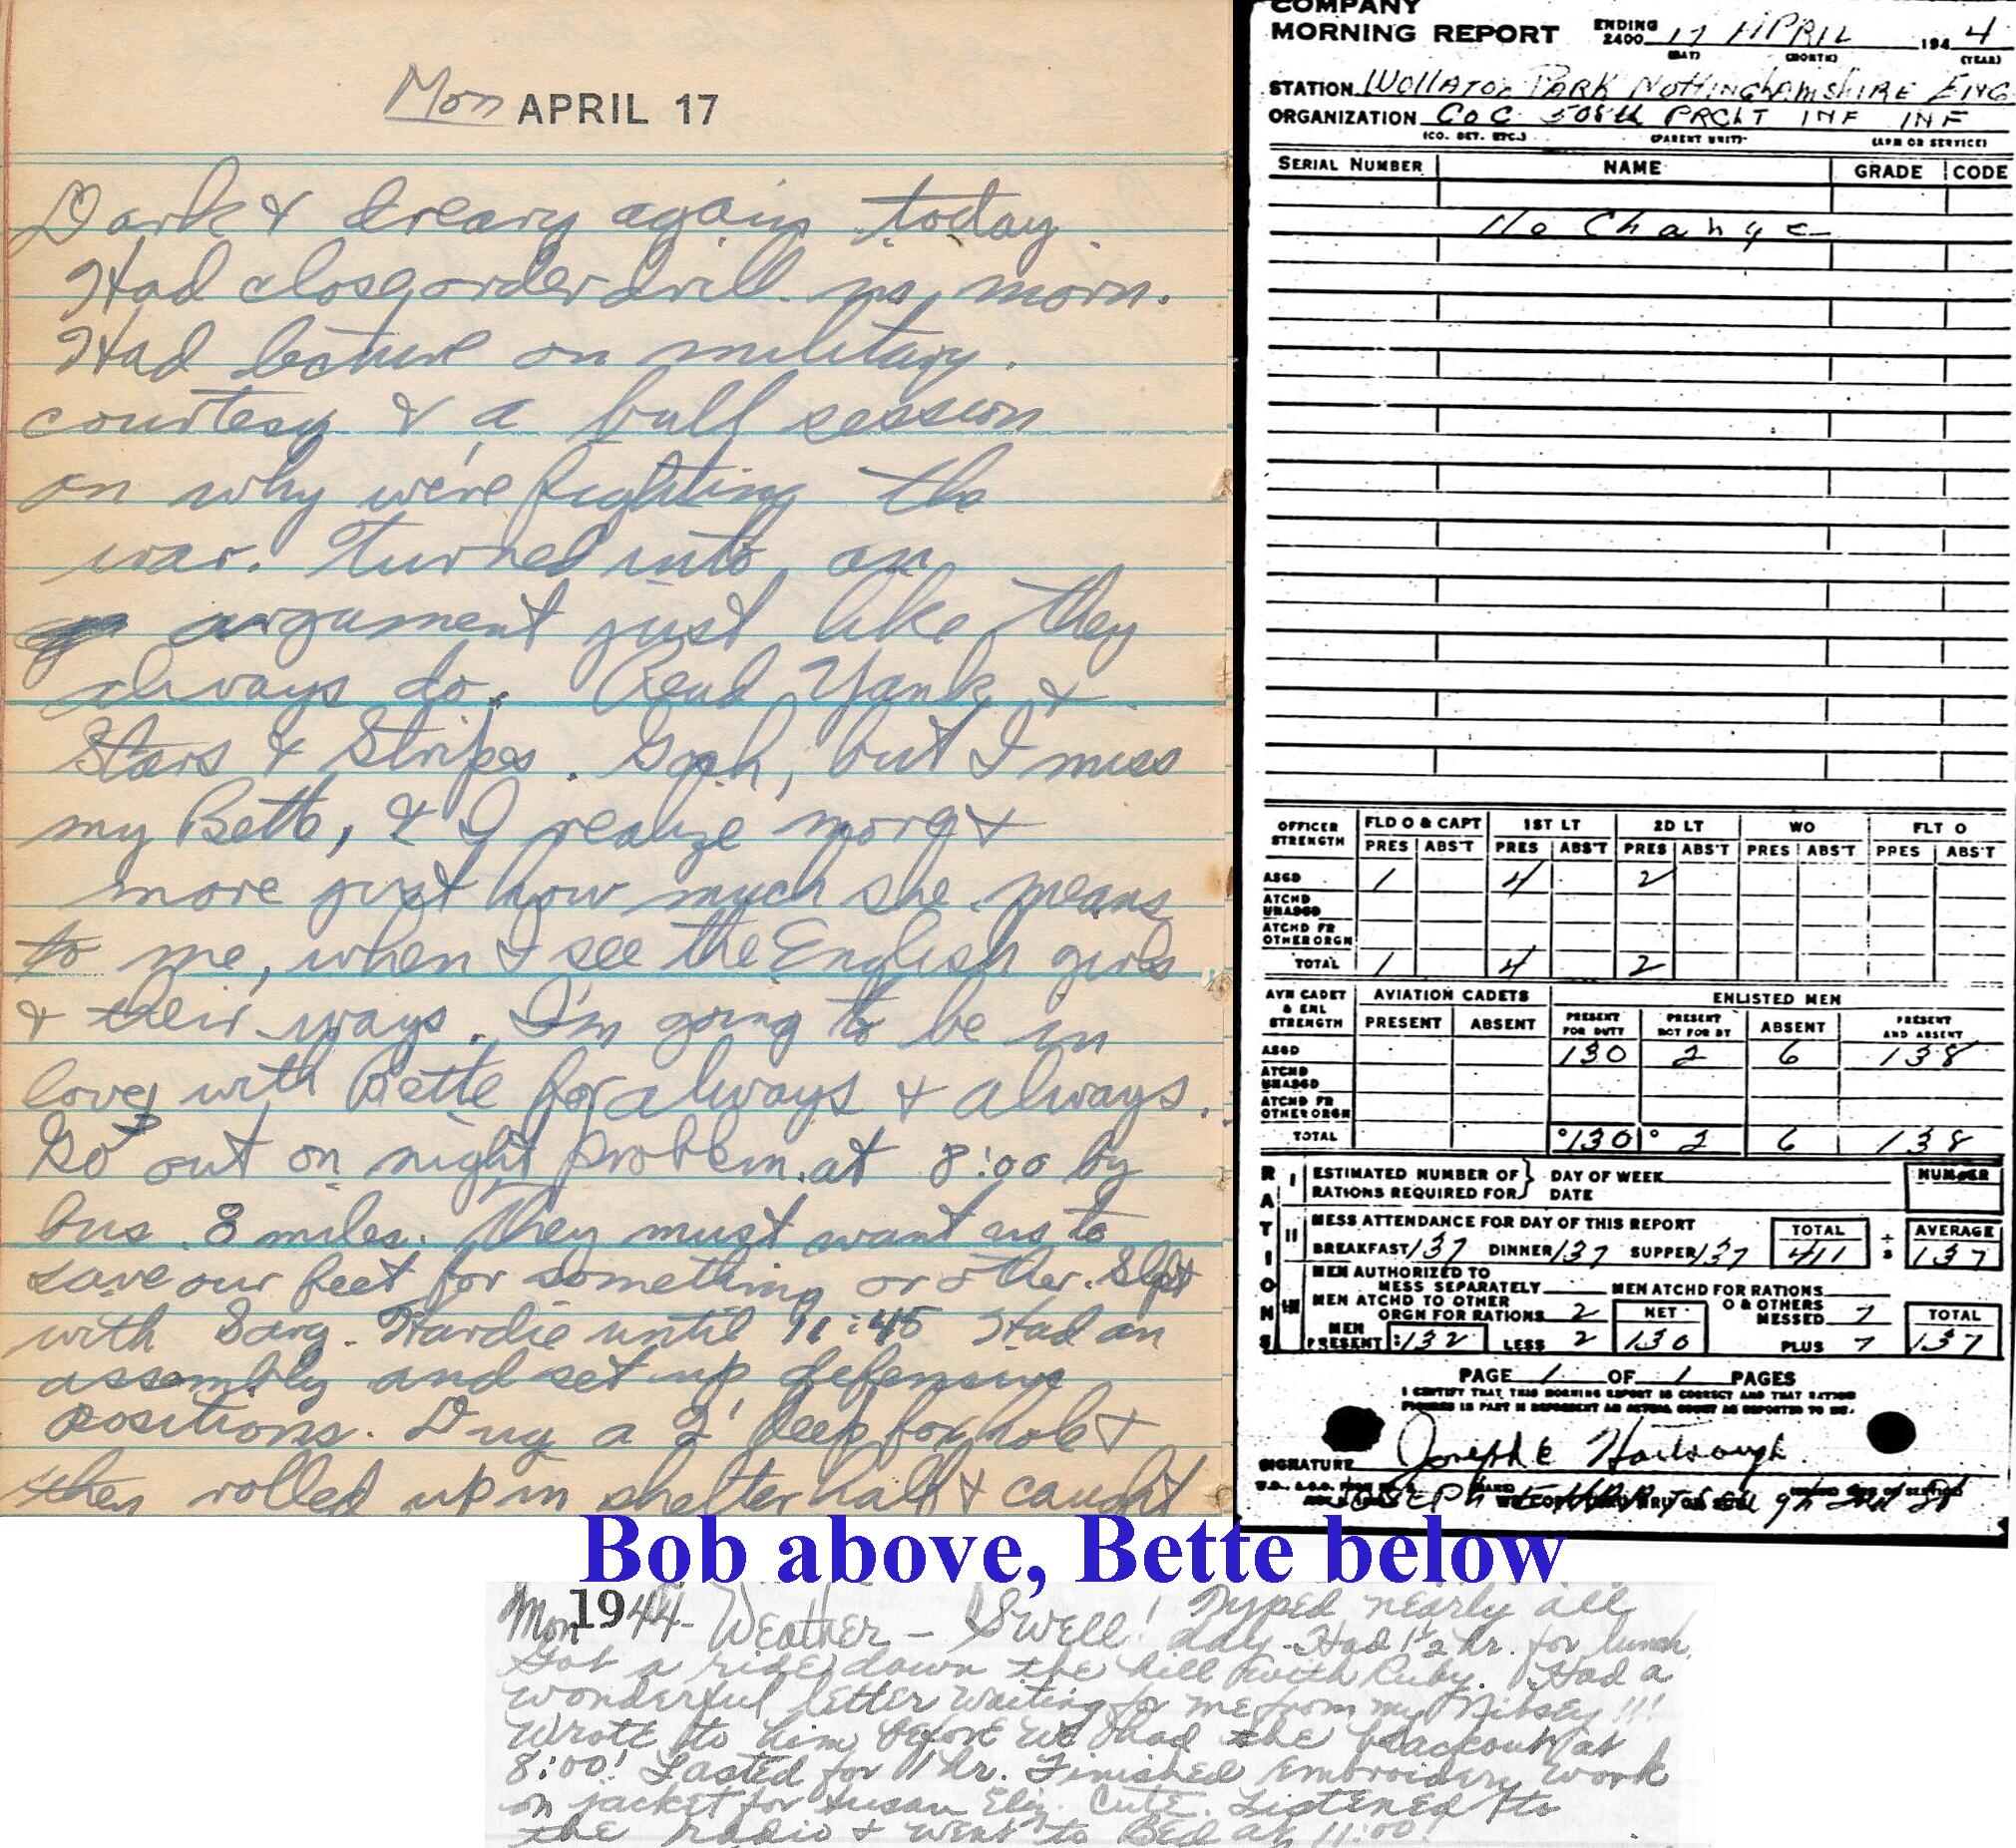 Mon APRIL 17
Dark & dreary again today.
Had close order drill in morn.
Had lecture on military
courtesy & a bull session
on why we're fighting the
war. Turned into an
argument just like they
always do. Read Yank &
Stars & Stripes. Gosh, but I miss
my Bette, & I realize more &
more just how much she means
to me, when I see the English girls
& their ways. I'm going to be in
love with Bette for always & always.
Go out on night problem at 8:00 by
bus. 8 miles. They must want us to
save our feet for something or other. Slept
with Sarg. Hardie until 11:45 Had an
assembly and set up defensive
positions. Dug a 2' deep foxhole &
then rolled up in shelter half & caught
COMPANY
MORNING REPORT ENDING 2400 17 APRIL 1944
(DAY) (MONTH) (YEAR)
STATION Wollaton PARK NOTTINGHAMSHIRE ENG
ORGANIZATION CO C 508th PRCHT INF INF
(CO. DET. ETC.) (PARENT UNIT) (ARM OR SERVICE)
SERIAL NUMBER NAME GRADE CODE
No Change
OFFICER STRENGTH FLD O & CAPT 1ST LT 2D LT WO FLT O
PRES ABS'T PRES ABS'T PRES ABS'T PRES ABS'T PRES ABS'T
ASGD 1 4 2
ATCHD UNASGD
ATCHD FR OTHER ORGN
TOTAL 1 4 2
AVN CADET & ENL STRENGTH AVIATION CADETS ENLISTED MEN
PRESENT ABSENT PRESENT FOR DUTY PRESENT NOT FOR DY ABSENT PRESENT AND ABSENT
ASGD 130 2 6 138
ATCHD UNASGD
ATCHD FR OTHER ORGN
TOTAL 130 2 6 138
RATIONS
I ESTIMATED NUMBER OF RATIONS REQUIRED FOR } DAY OF WEEK DATE NUMBER
II MESS ATTENDANCE FOR DAY OF THIS REPORT TOTAL ÷ AVERAGE
BREAKFAST 137 DINNER 137 SUPPER 137 411 3 137
III MEN AUTHORIZED TO MESS SEPARATELY MEN ATCHD FOR RATIONS
MEN ATCHD TO OTHER ORGN FOR RATIONS 2 NET O & OTHERS MESSED 7 TOTAL
MEN PRESENT 132 LESS 2 130 PLUS 7 137
PAGE 1 OF 1 PAGES
I CERTIFY THAT THIS MORNING REPORT IS CORRECT AND THAT RATION
FIGURES IN PART II REPRESENT AN ACTUAL COUNT AS REPORTED TO ME.
SIGNATURE Joseph E
JOSEPH E
Bob above, Bette below
Mon 1944- Weather - Swell! Typed nearly all
day. Had 1½ hr. for lunch.
Got a ride down the hill with Ruby. Had a
wonderful letter waiting for me from my Nibsey!!!
Wrote to him before we had the blackout at
8:00! Lasted for 1 hr. Finished embroidery work
on jacket for Susan Eliz. Cute. Listened to
the radio & went to bed at 11:00!